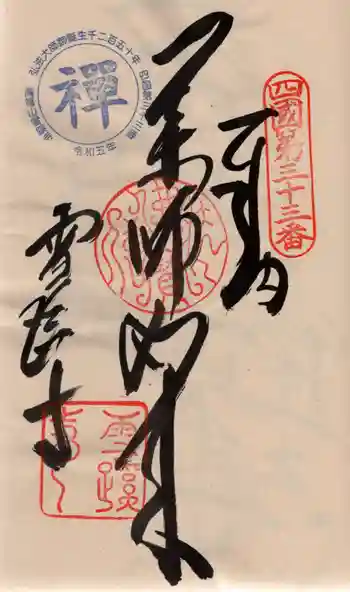 四國第三十三番
奉納
薬師如来
雪蹊寺
弘法大師御誕生千二百五十年
四国第三十三番
禪
令和五年